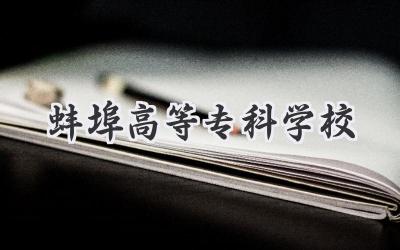 蚌埠高等专科学校